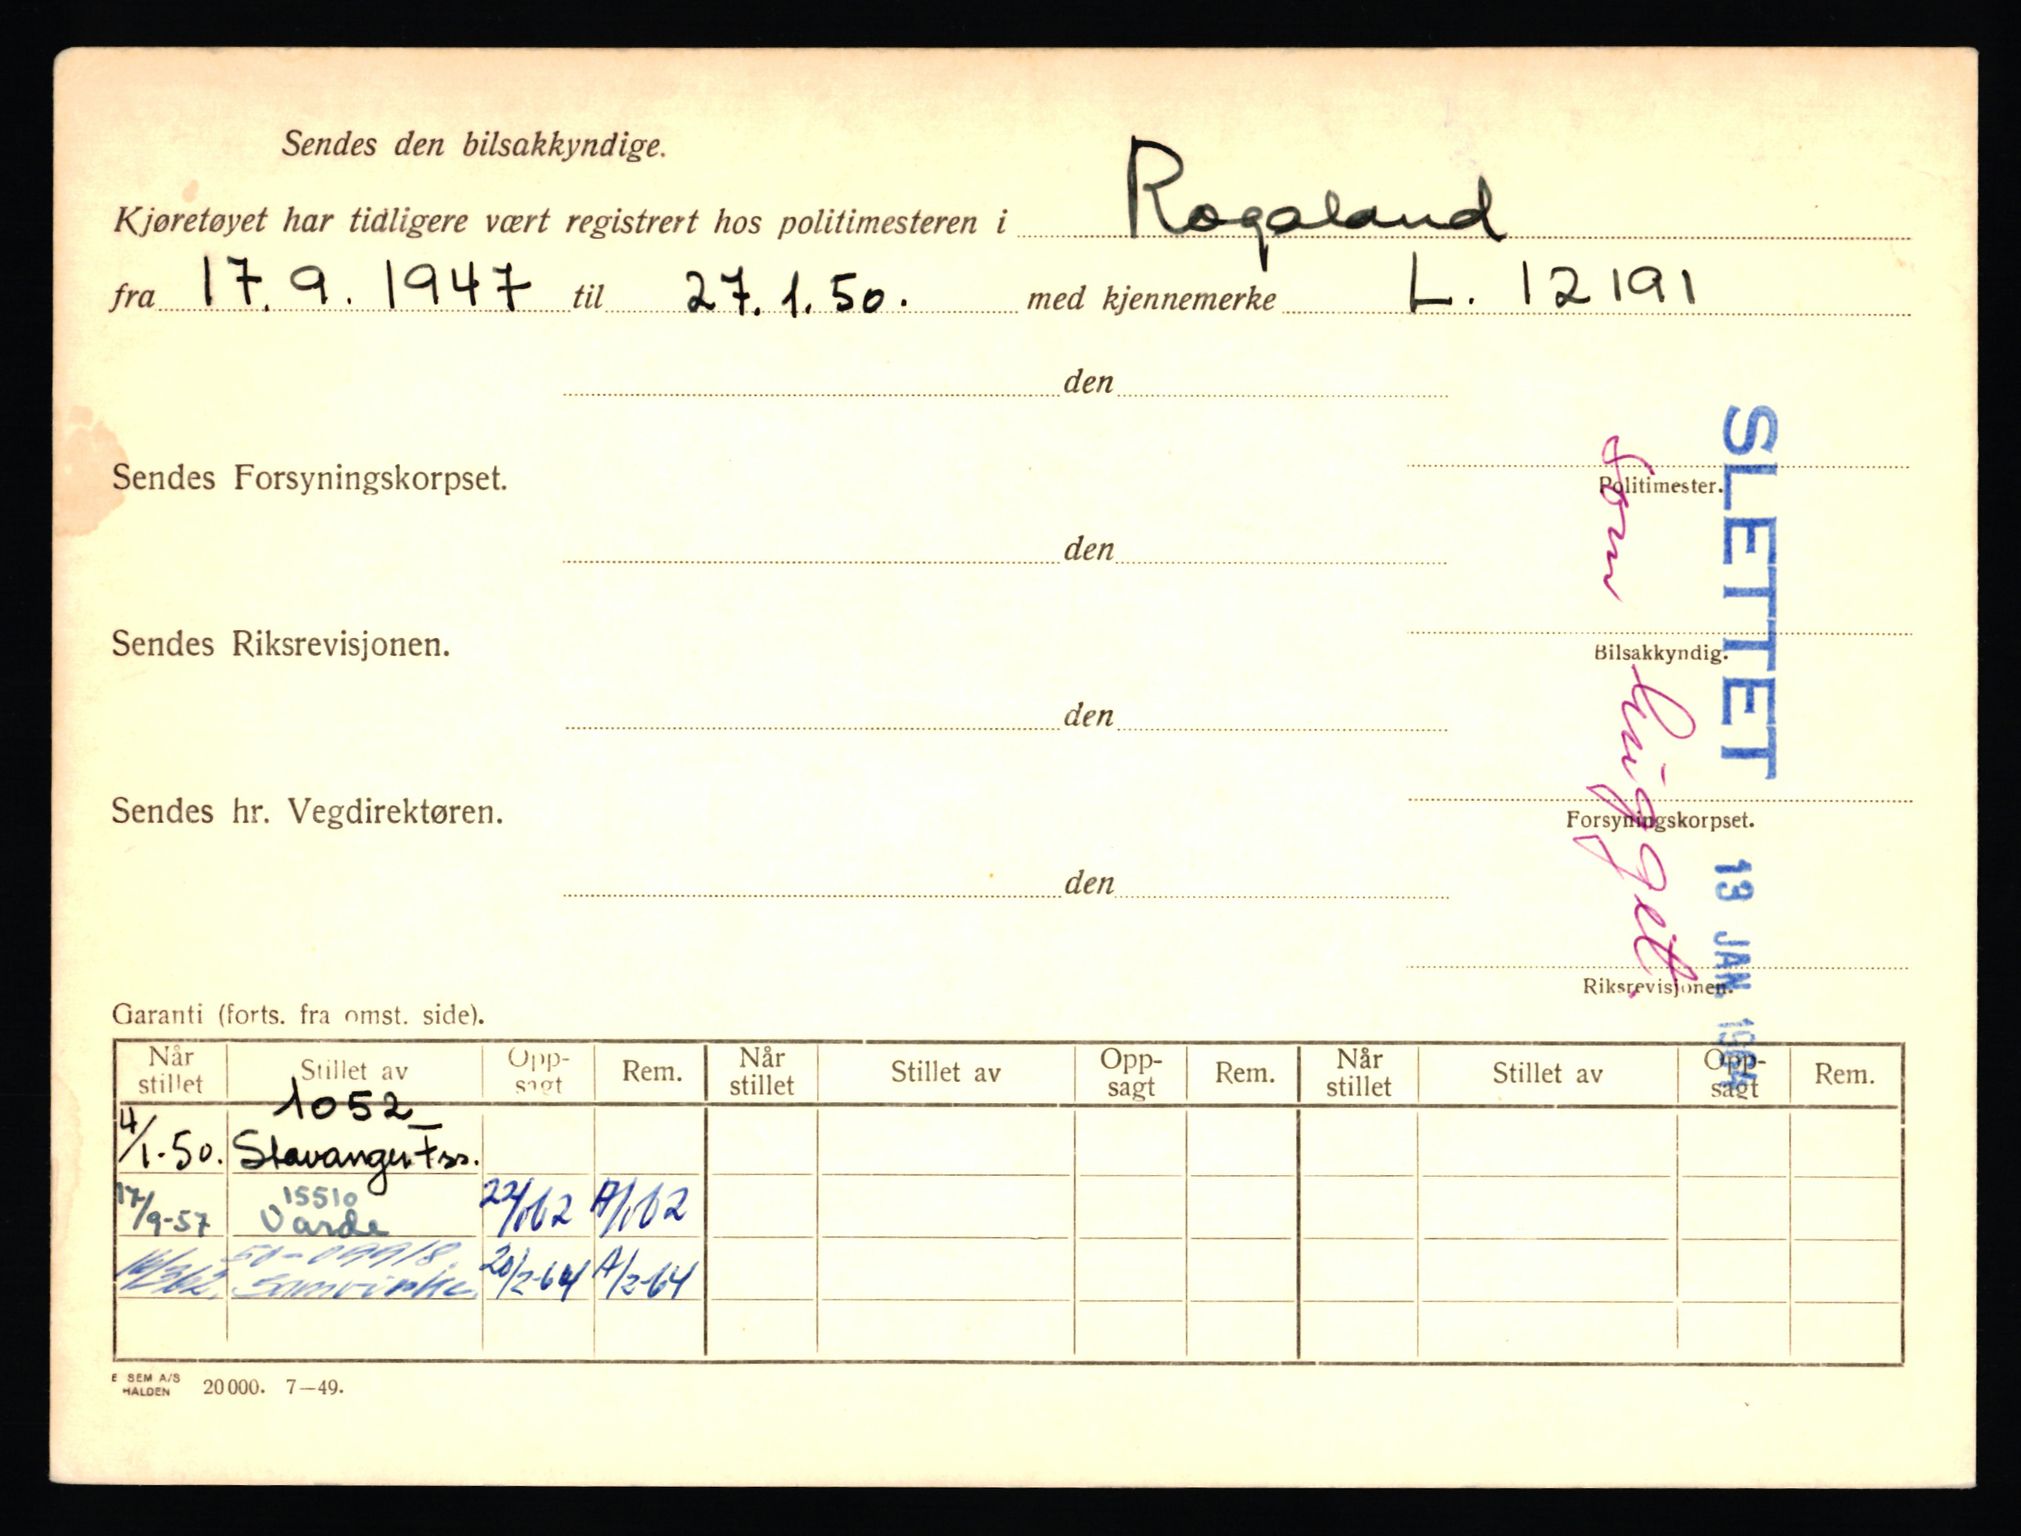 Sendes den bilsakkyndige.
Kjøretøyet har tidligere vært registrert hos politimesteren i Rogaland
fra 17.9.1947 til 27.1.50. med kjennemerke L. 12191
den
Politimester.
Sendes Forsyningskorpset.
den
Bilsakkyndig.
Sendes Riksrevisjonen.
den
Forsyningskorpset.
Sendes hr. Vegdirektøren.
den
Riksrevisjonen.
SLETTET 13 JAN. 1964
som hugget.
Garanti (forts. fra omst. side).
Når stillet Stillet av Opp-sagt Rem. Når stillet Stillet av Opp-sagt Rem. Når stillet Stillet av Opp-sagt Rem.
1052
4/1-50. Stavanger Fss.
15510
17/9-57 Varde 22/1 62 A/1 62
50-09918.
16/3 62. Samvirke 20/2-64 A/2-64
E SEM A/S
HALDEN 20000. 7—49.